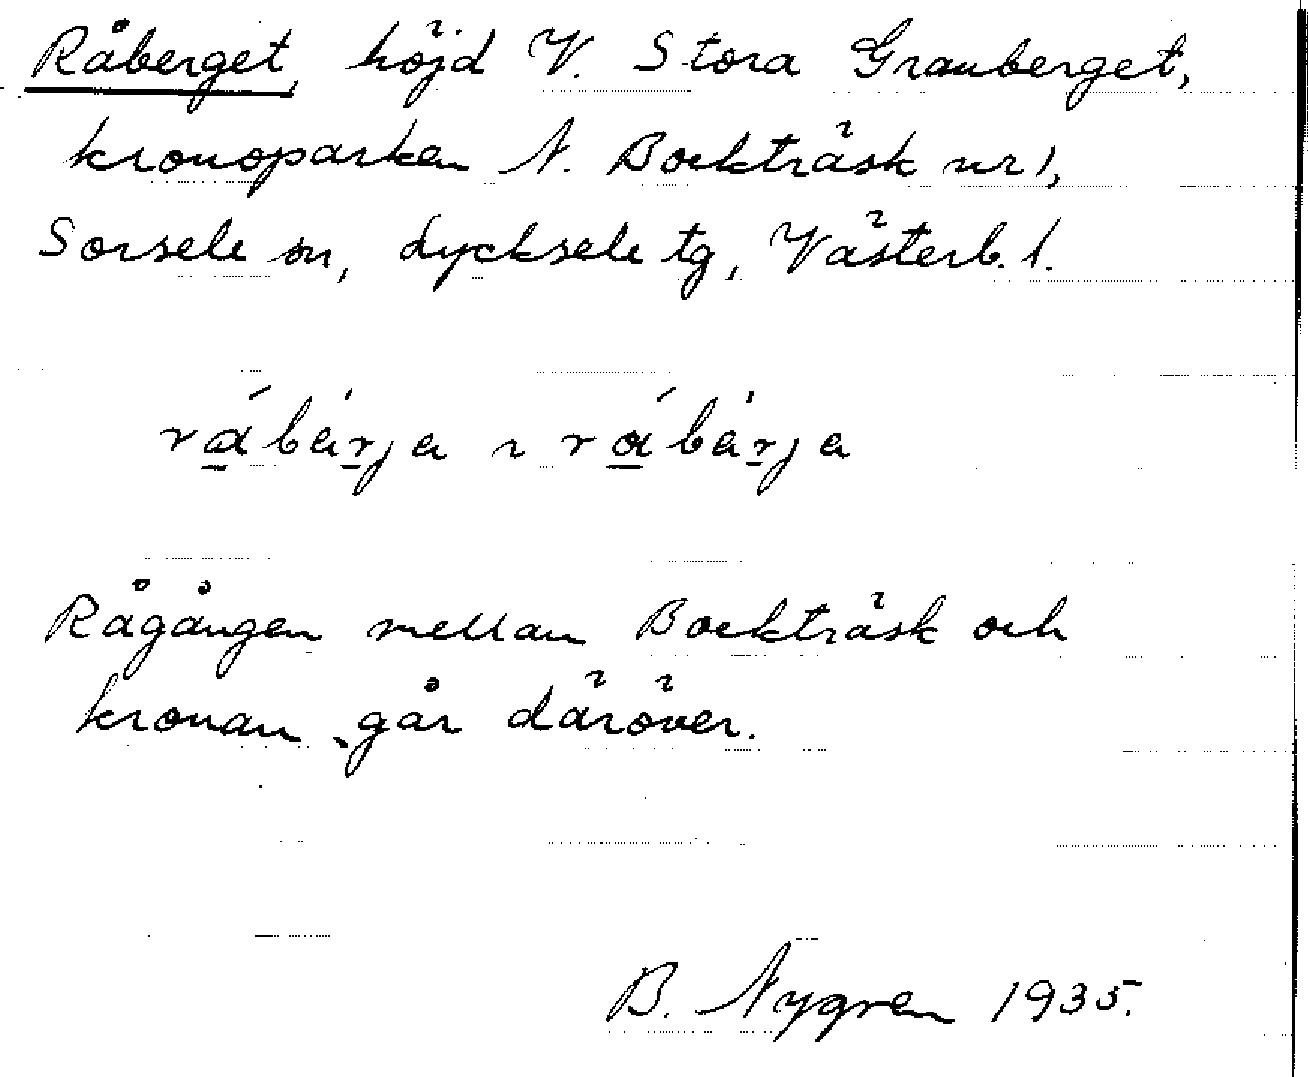 Råberget, höjd V. Stora Granberget,
kronoparken N. Bockträsk nr 1,
Sorsele sn, Lycksele tg, Västerb. l.
Rågången mellan Bockträsk och
kronan går däröver.
B. Nygren 1935.